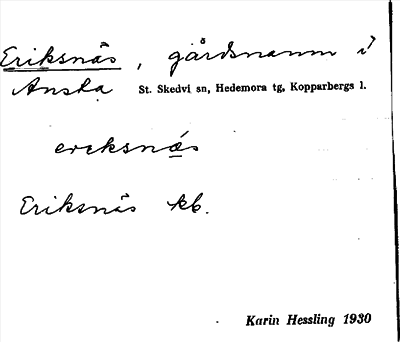 Eriksnäs, gårdsnamn i
Anska St. Skedvi sn, Hedemora tg, Kopparbergs l.
ereksnǽs
Eriksnäs kb.
Karin Hessling 1930